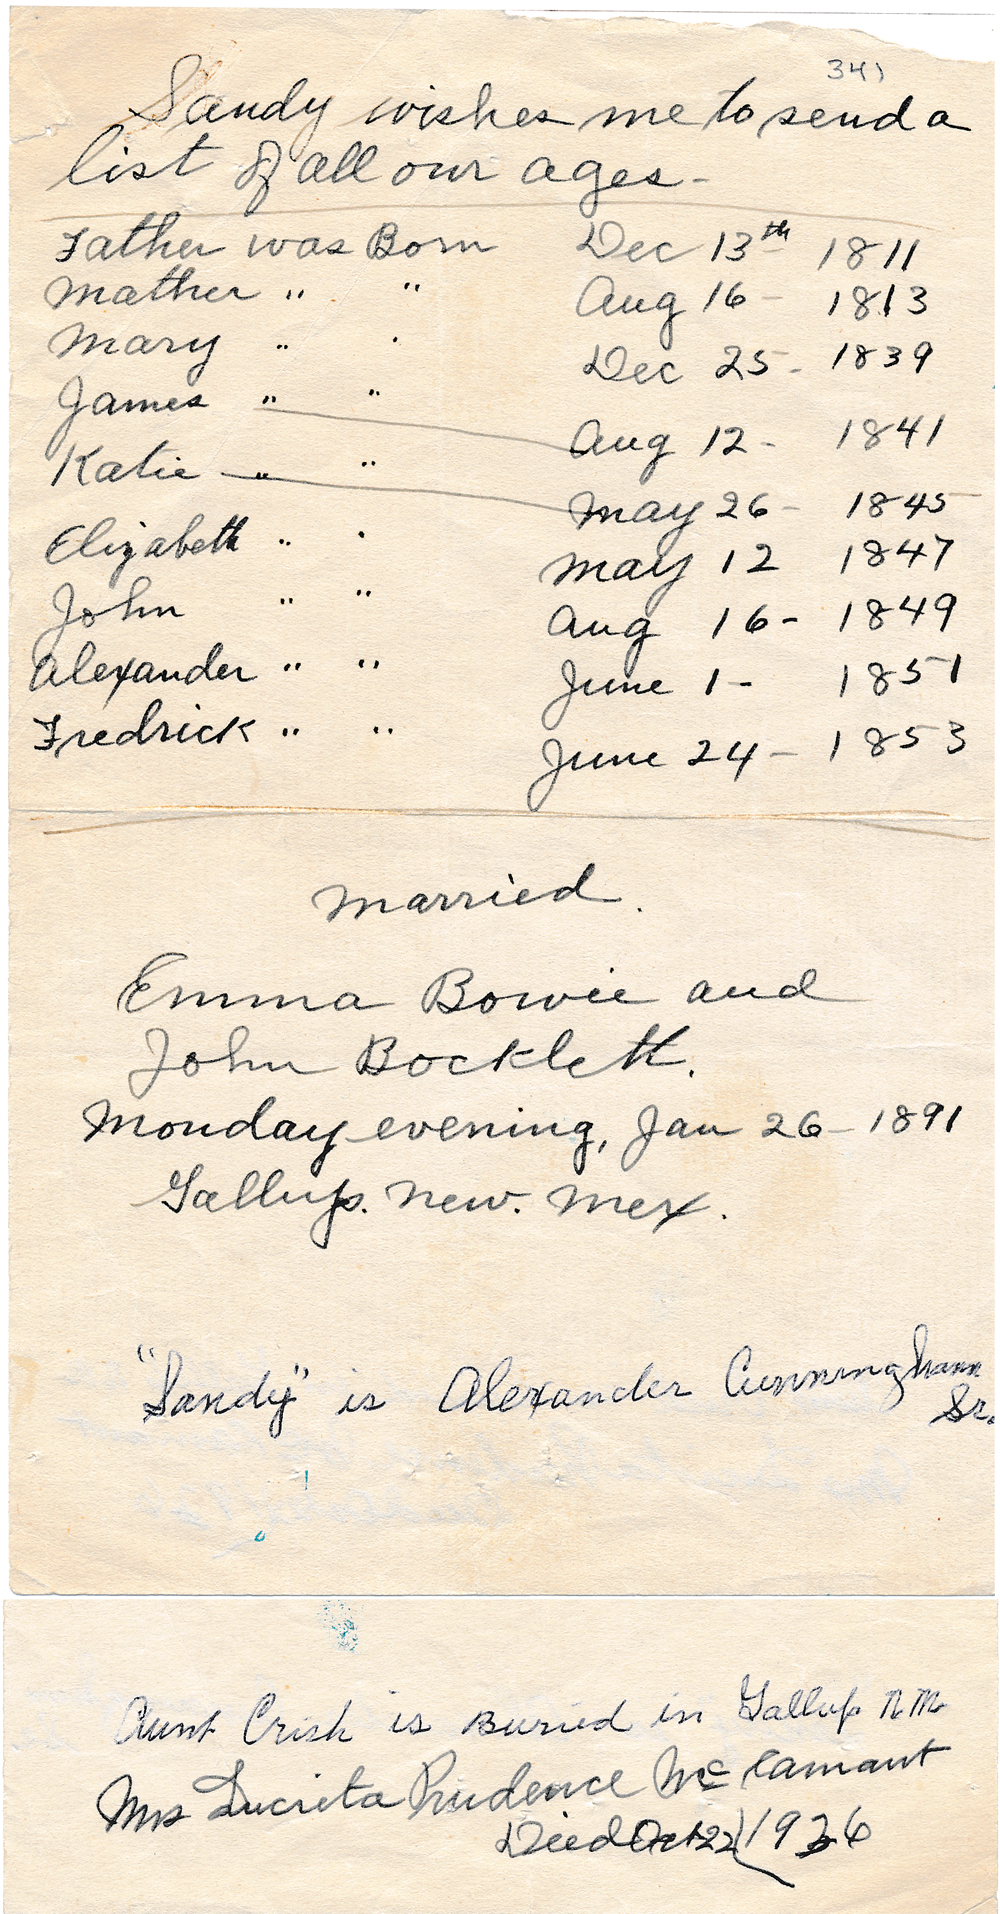 341
Sandy wishes me to send a
list of all our ages -
Father was Born Dec 13th 1811
Mother " " Aug 16 - 1813
Mary " " Dec 25 - 1839
James " " Aug 12 - 1841
Katie " " May 26 - 1845
Elizabeth " " May 12 1847
John " " Aug 16 - 1849
Alexander " " June 1 - 1851
Fredrick " " June 24 - 1853
Married.
Emma Bowie and
John Bocklett.
Monday evening, Jan 26 - 1891
Gallup. New. Mex.
"Sandy" is Alexander Cunningham
Sr.
Aunt Crish is Buried in Gallup N.M.
Mrs Lucreta Prudence McCamant
Died Oct 22 1936